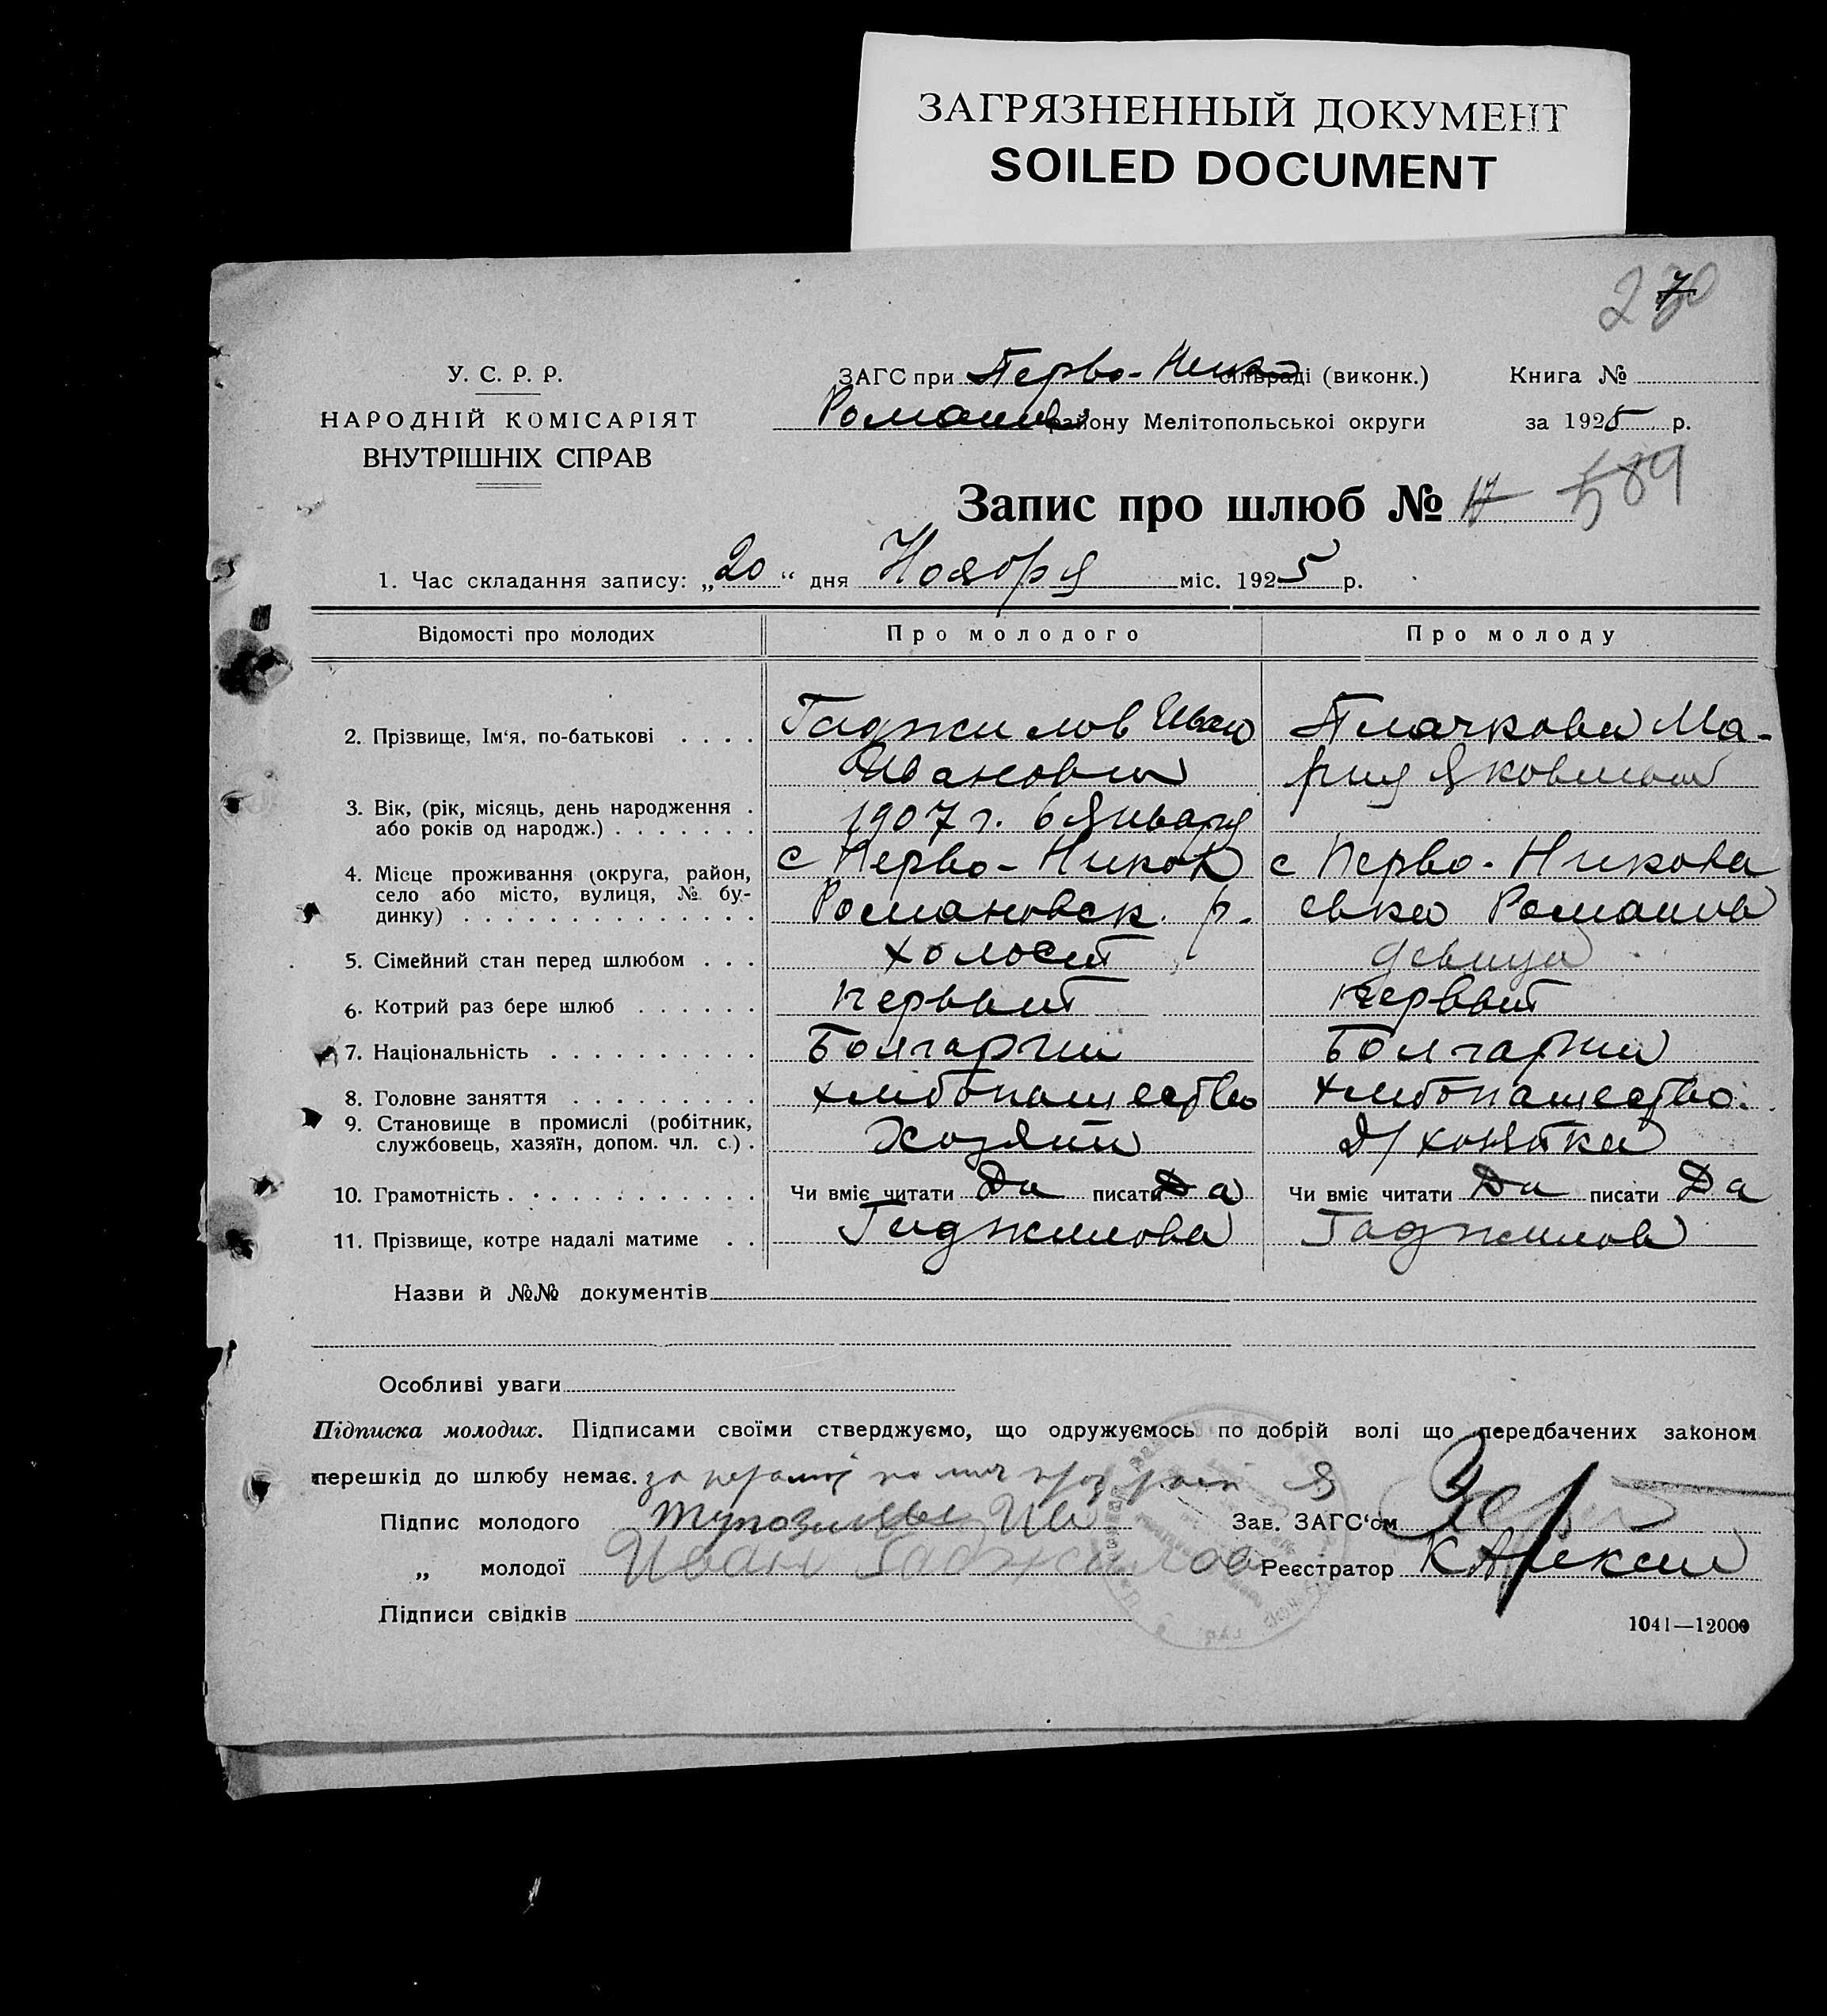 ЗАГРЯЗНЕННЫЙ ДОКУМЕНТ
SOILED DOCUMENT
У. С. Р. Р.
НАРОДНІЙ КОМІСАРІЯТ
ВНУТРІШНІХ СПРАВ
ЗАГС при Перво-Никол сільраді (виконк.)
Романов району Мелітопольської округи
Книга №
за 1925 р.
Запис про шлюб № 17 589
1. Час складання запису: „20“ дня Ноября міс. 1925 р.
Відомості про молодих Про молодого Про молоду
2. Прізвище, Ім'я, по-батькові Гаджилов Иван Плачкова Ма-
Иванович рия Яковлевна
3. Вік, (рік, місяць, день народження
або років од народж.) 1907 г. 6 Января
4. Місце проживання (округа, район, с Перво-Никол с Перво-Никола
село або місто, вулиця, № бу-
динку) Романовск. р. евка Романов
5. Сімейний стан перед шлюбом холост девица
6. Котрий раз бере шлюб первый первый
7. Національність Болгарин Болгарин
8. Головне заняття хлибопашество хлибопашество.
9. Становище в промислі (робітник,
службовець, хазяїн, допом. чл. с.) Хозяин Д/хозяйка
10. Грамотність Чи вміє читати Да писати Да Чи вміє читати Да писати Да
11. Прізвище, котре надалі матиме Гаджилова Гаджилов
Назви й №№ документів
Особливі уваги
Підписка молодих. Підписами своїми стверджуємо, що одружуємось по добрій волі що передбачених законом
перешкід до шлюбу немає.
Підпис молодого
Зав. ЗАГС'ом
„ молодої Иван Гаджилов
Реєстратор
Підписи свідків
1041—12000